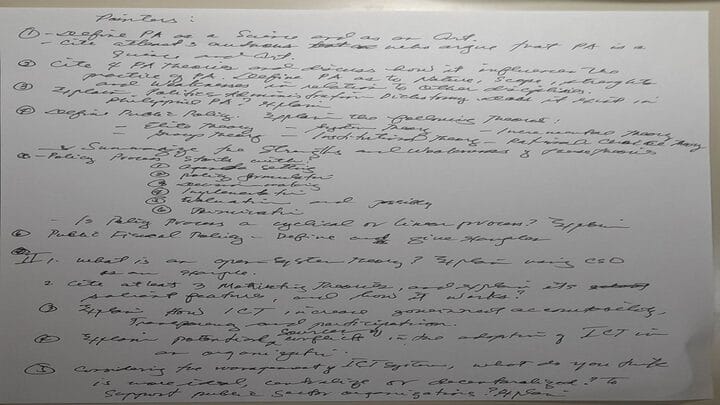 Pointers:
① - Define PA as a Science and as an Art.
- Cite atleast 3 authors who argue that PA is a
Science and Art
② Cite 4 PA Theories and discuss how it influences the
practice of PA. Define PA as to Nature, Scope, strengths
and weaknesses in relation to other disciplines.
③ Explain - Politics-Administration Dichotomy does it exist in
Philippine PA? Explain
④ Define Public Policy. Explain the following Theories:
- Elite Theory - System Theory - Incremental Theory
- Group Theory - Institutional Theory - Rational Theory
Summarize the Strengths and Weaknesses of these theories
- Policy Process starts with:
① agenda setting
② policy formulation
③ decision making
④ Implementation
⑤ Evaluation and
⑥ Termination
- Is Policy Process a cyclical or linear process? Explain
⑥ Public Fiscal Policy - Define and give examples
II 1. What is an open-system theory? Explain using CSO
as an example.
2. Cite at least 3 Theories, and explain its
salient features, and how it works?
③ Explain how ICT increase government accountability,
Transparency and participation.
④ Explain potential sources of conflicts in the adoption of ICT in
an organization.
⑤ Considering the management of ICT system, what do you think
is more ideal, centralize or decentralized? To
support public sector organizations? Explain